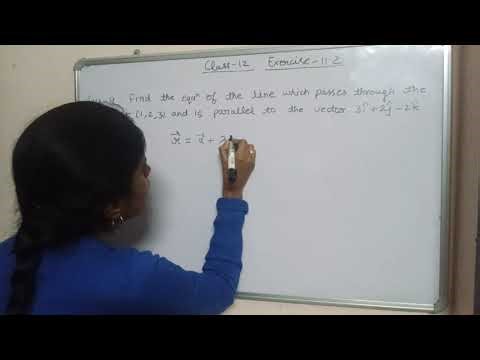 Class-12 Exercise-11.2
Find the eqnⁿ of the line which passes through the
(1,2,3) and is parallel to the vector 3î + 2ĵ - 2k̂
r⃗ = a⃗ + λ